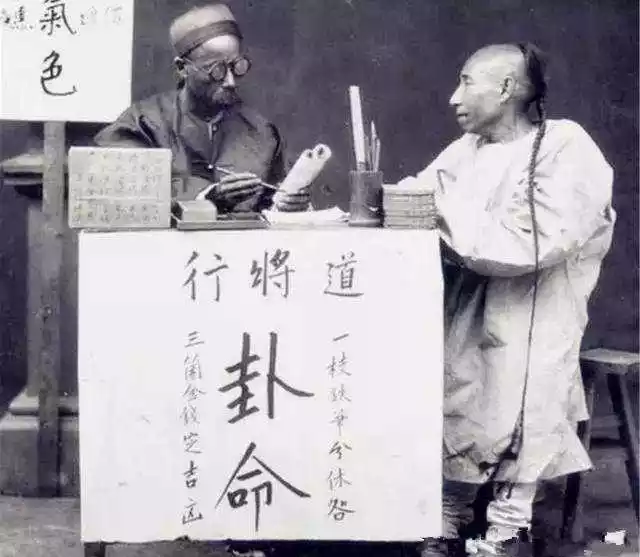 氣色
道將行
一枝鉄筆分休咎
卦命
三箇金錢定吉凶